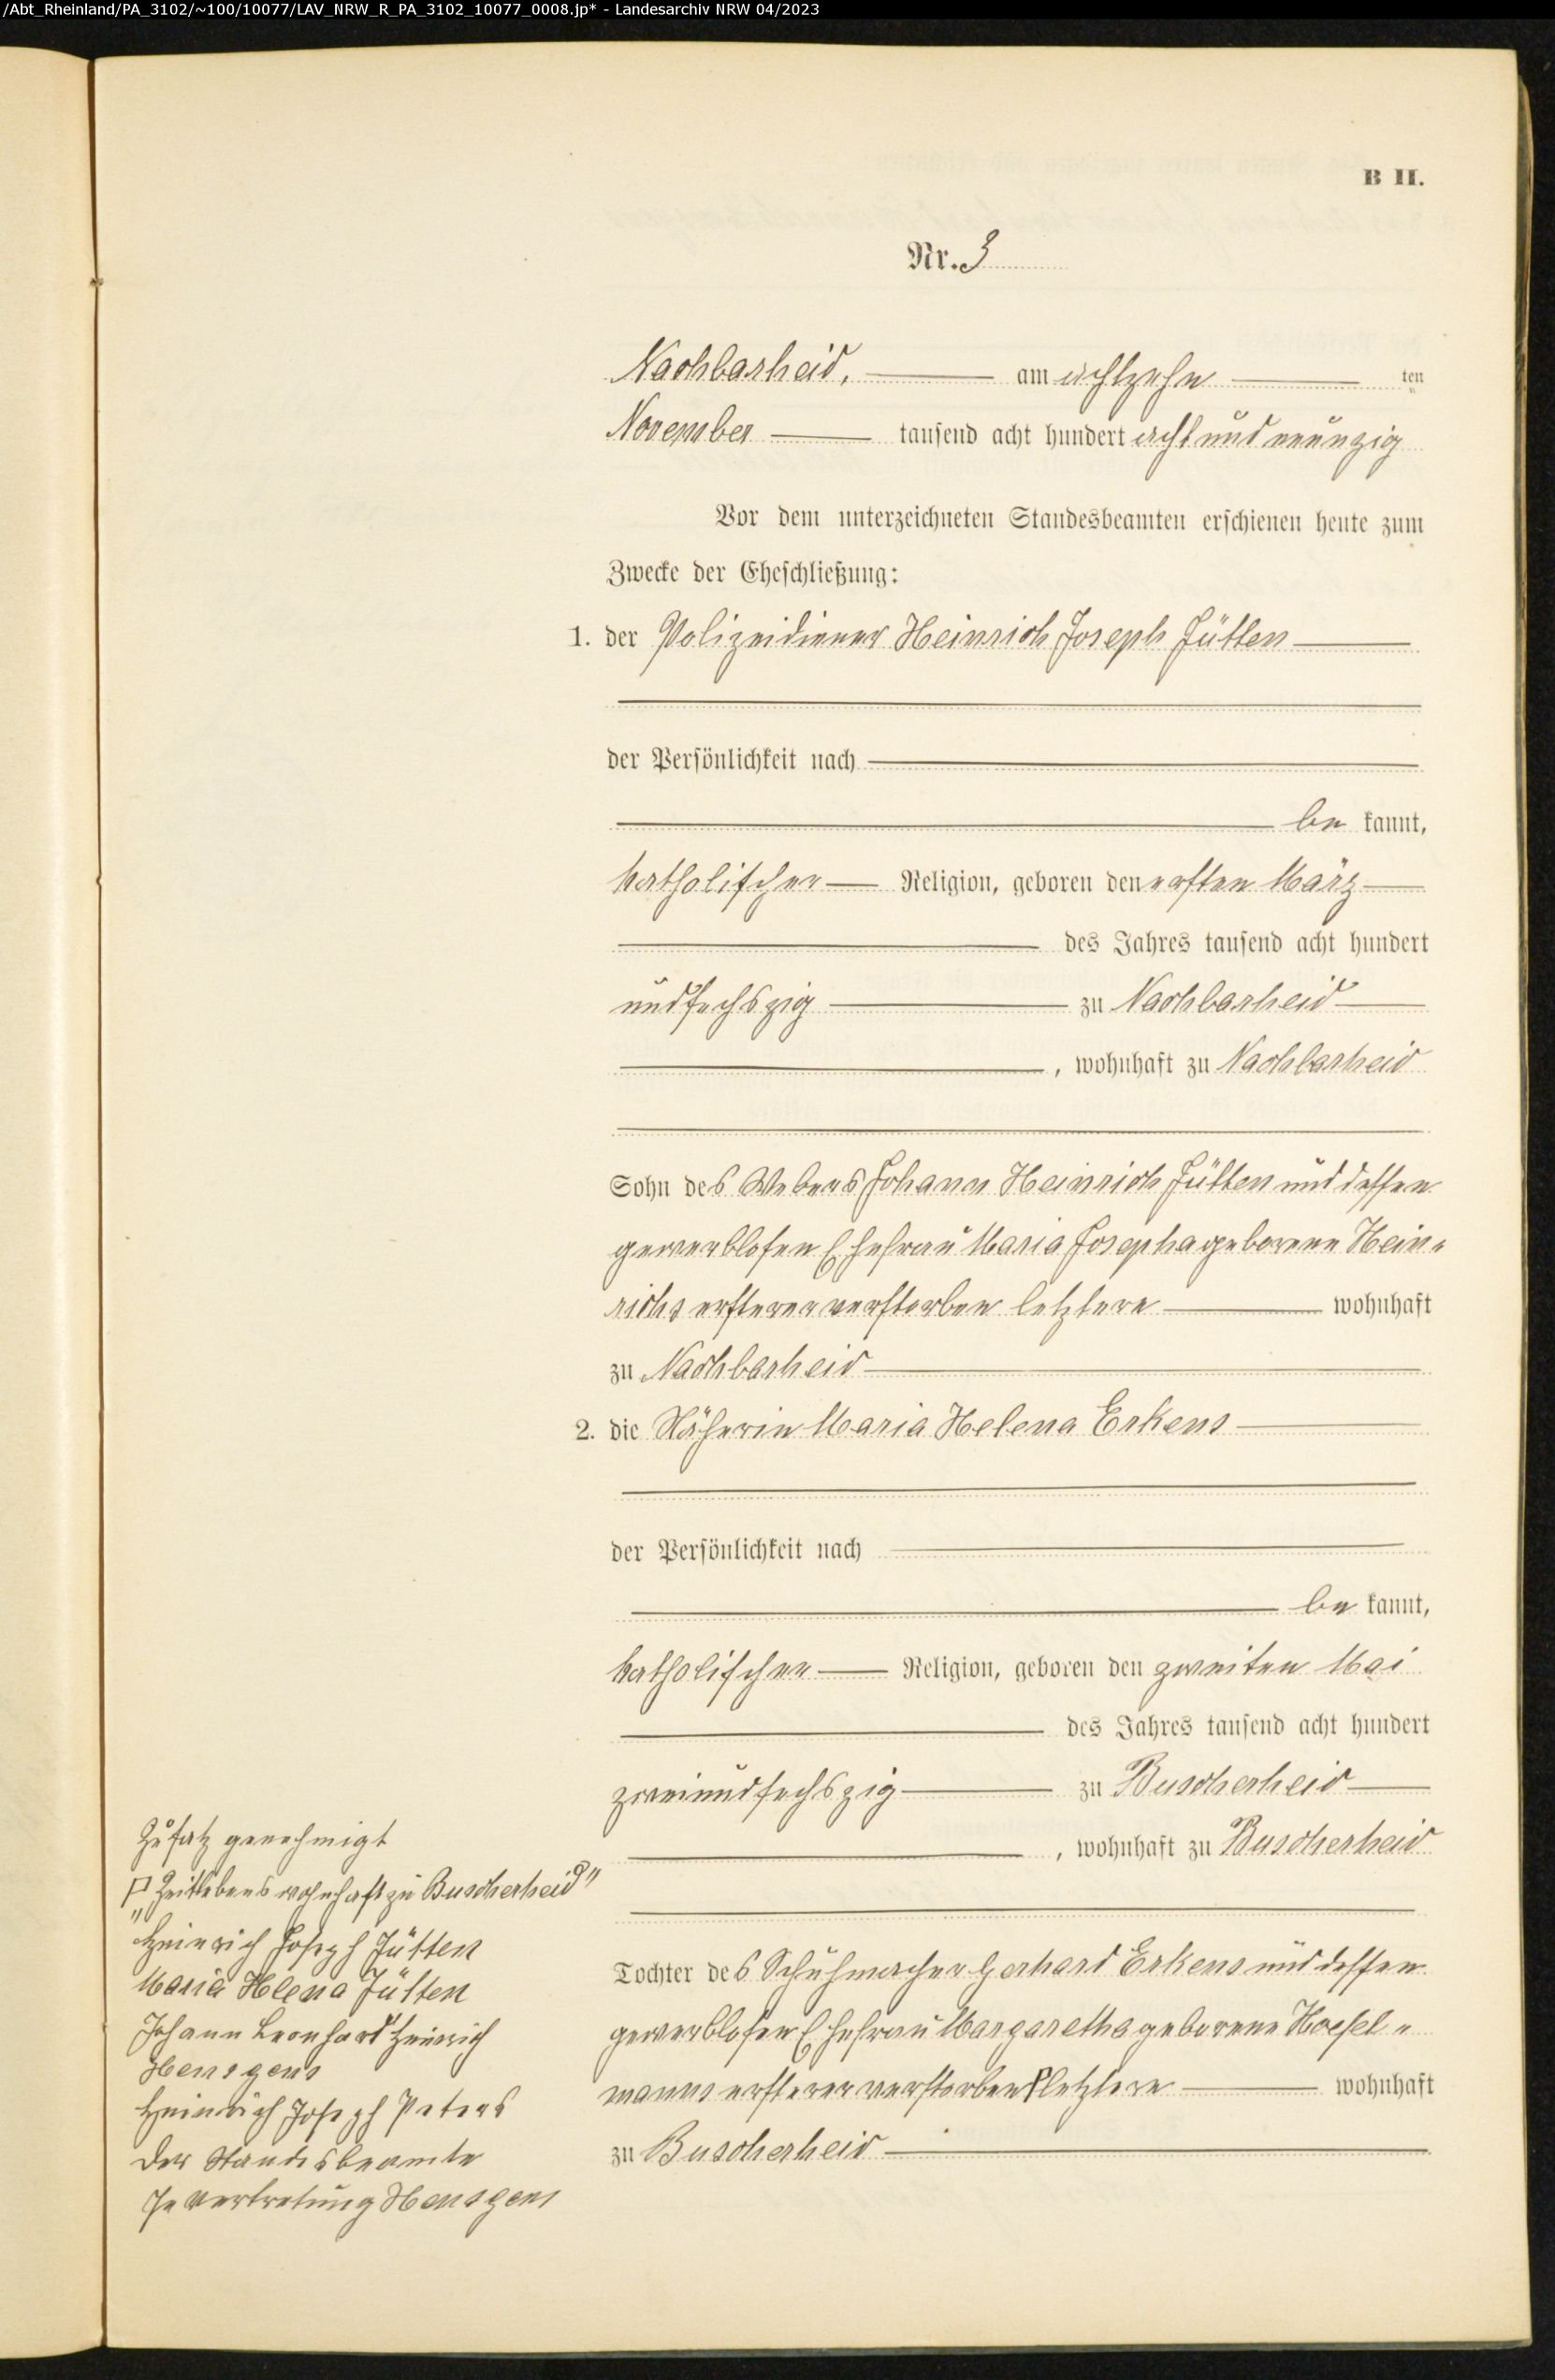 /Abt_Rheinland/PA_3102/~100/10077/LAV_NRW_R_PA_3102_10077_0008.jp* - Landesarchiv NRW 04/2023
B II.
Nr. 3
Nachbarheid, am achtzehn ten
November tausend acht hundert acht und neunzig
Vor dem unterzeichneten Standesbeamten erschienen heute zum
Zwecke der Eheschließung:
1. der Polizeidiener Heinrich Joseph Jütten
der Persönlichkeit nach
be kannt,
katholischer Religion, geboren den ersten März
des Jahres tausend acht hundert
und sechszig zu Nachbarheid
, wohnhaft zu Nachbarheid
Sohn des Webers Johann Heinrich Jütten und dessen
gewerblosen Ehefrau Maria Josepha geborene Hein-
richs ersterer verstorben letztere wohnhaft
zu Nachbarheid
2. die Näherin Maria Helena Erkens
der Persönlichkeit nach
be kannt,
katholischer Religion, geboren den zweiten Mai
des Jahres tausend acht hundert
zweiundsechszig zu Buscherheid
, wohnhaft zu Buscherheid
Tochter des Schuhmacher Gerhard Erkens und dessen
gewerblosen Ehefrau Margaretha geborene Hoesel-
manns ersterer verstorben letztere wohnhaft
zu Buscherheid
Zusatz genehmigt
„Zeitlebens wohnhaft zu Buscherheid"
Heinrich Joseph Jütten
Maria Hlena Jütten
Johann Leonhard Heinrich
Hensgens
Heinrich Joseph Peters
Der Standesbeamte
In Vertretung Hensgens